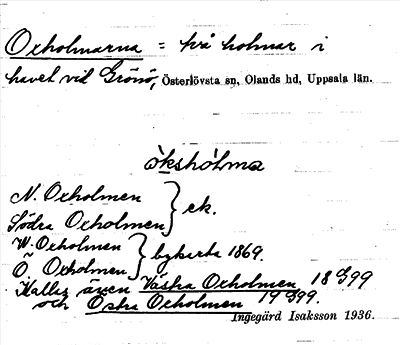 Oxholmarna = två holmar i
havet vid Grönö, Österlövsta sn, Olands hd, Uppsala län.
òkshòlma
N. Oxholmen } ek.
Södra Oxholmen
W. Oxholmen } bykarta 1869.
Ö. Oxholmen
Kallas även Västra Oxholmen 18 G99
och Östra Oxholmen 19 G99.
Ingegärd Isaksson 1936.